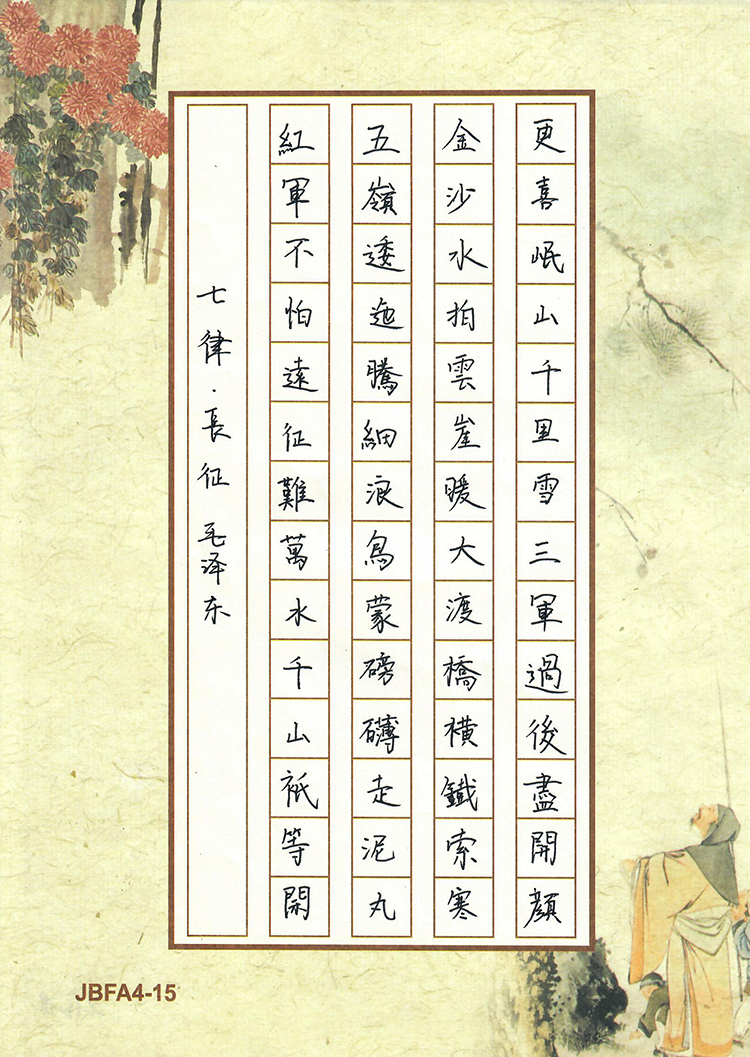 七律·長征 毛泽东
紅軍不怕遠征難萬水千山祇等閑
五嶺逶迤騰細浪烏蒙磅礴走泥丸
金沙水拍雲崖暖大渡橋橫鐵索寒
更喜岷山千里雪三軍過後盡開顏
JBFA4-15